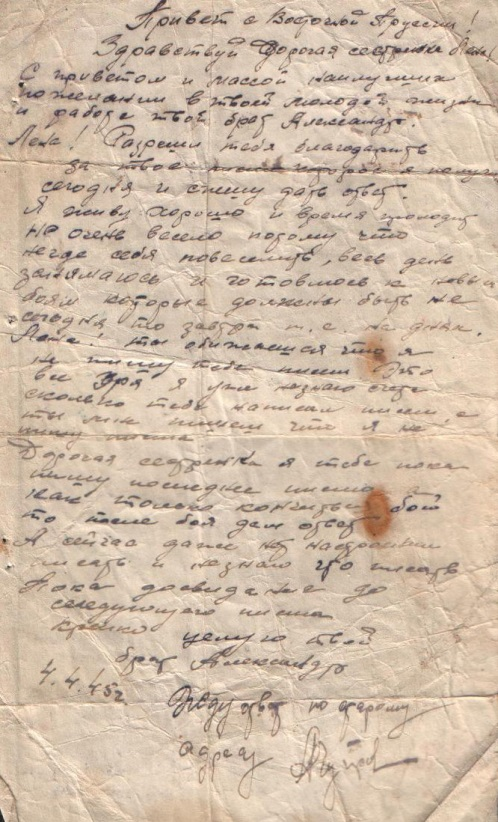 Привет с Восточной Пруссии!
Здравствуй Дорогая сестренка Лена!
С приветом и массой наилучших
пожелании в твоей молодой жизни
и работе твой брат Александр.
Лена! Разреши тебя благодарить
за твое которое я получил
сегодня и спешу дать ответ.
Я живу хорошо и время проходит
не очень весело потому что
негде себя повеселить, весь день
занимаюсь и готовлюсь к новым
боям которые должны быть не
сегодня то завтра т.е. на днях.
Лена! ты обижаешся что я
не пишу тебе писем Это
вы зря я уже незнаю счета
сколько тебе написал писем, а
ты мне пишеш что я не
пишу письма
Дорогая сестренка я тебе пока
пишу последнее письмо а
как только кончиться бой
то после боя дам ответ
А сейчас даже нет настроения
писать и незнаю что писать
Пока досвидание до
следующего письма
крепко целую твой
брат Александр
4.4.45г.
Жду ответ по старому
адресу